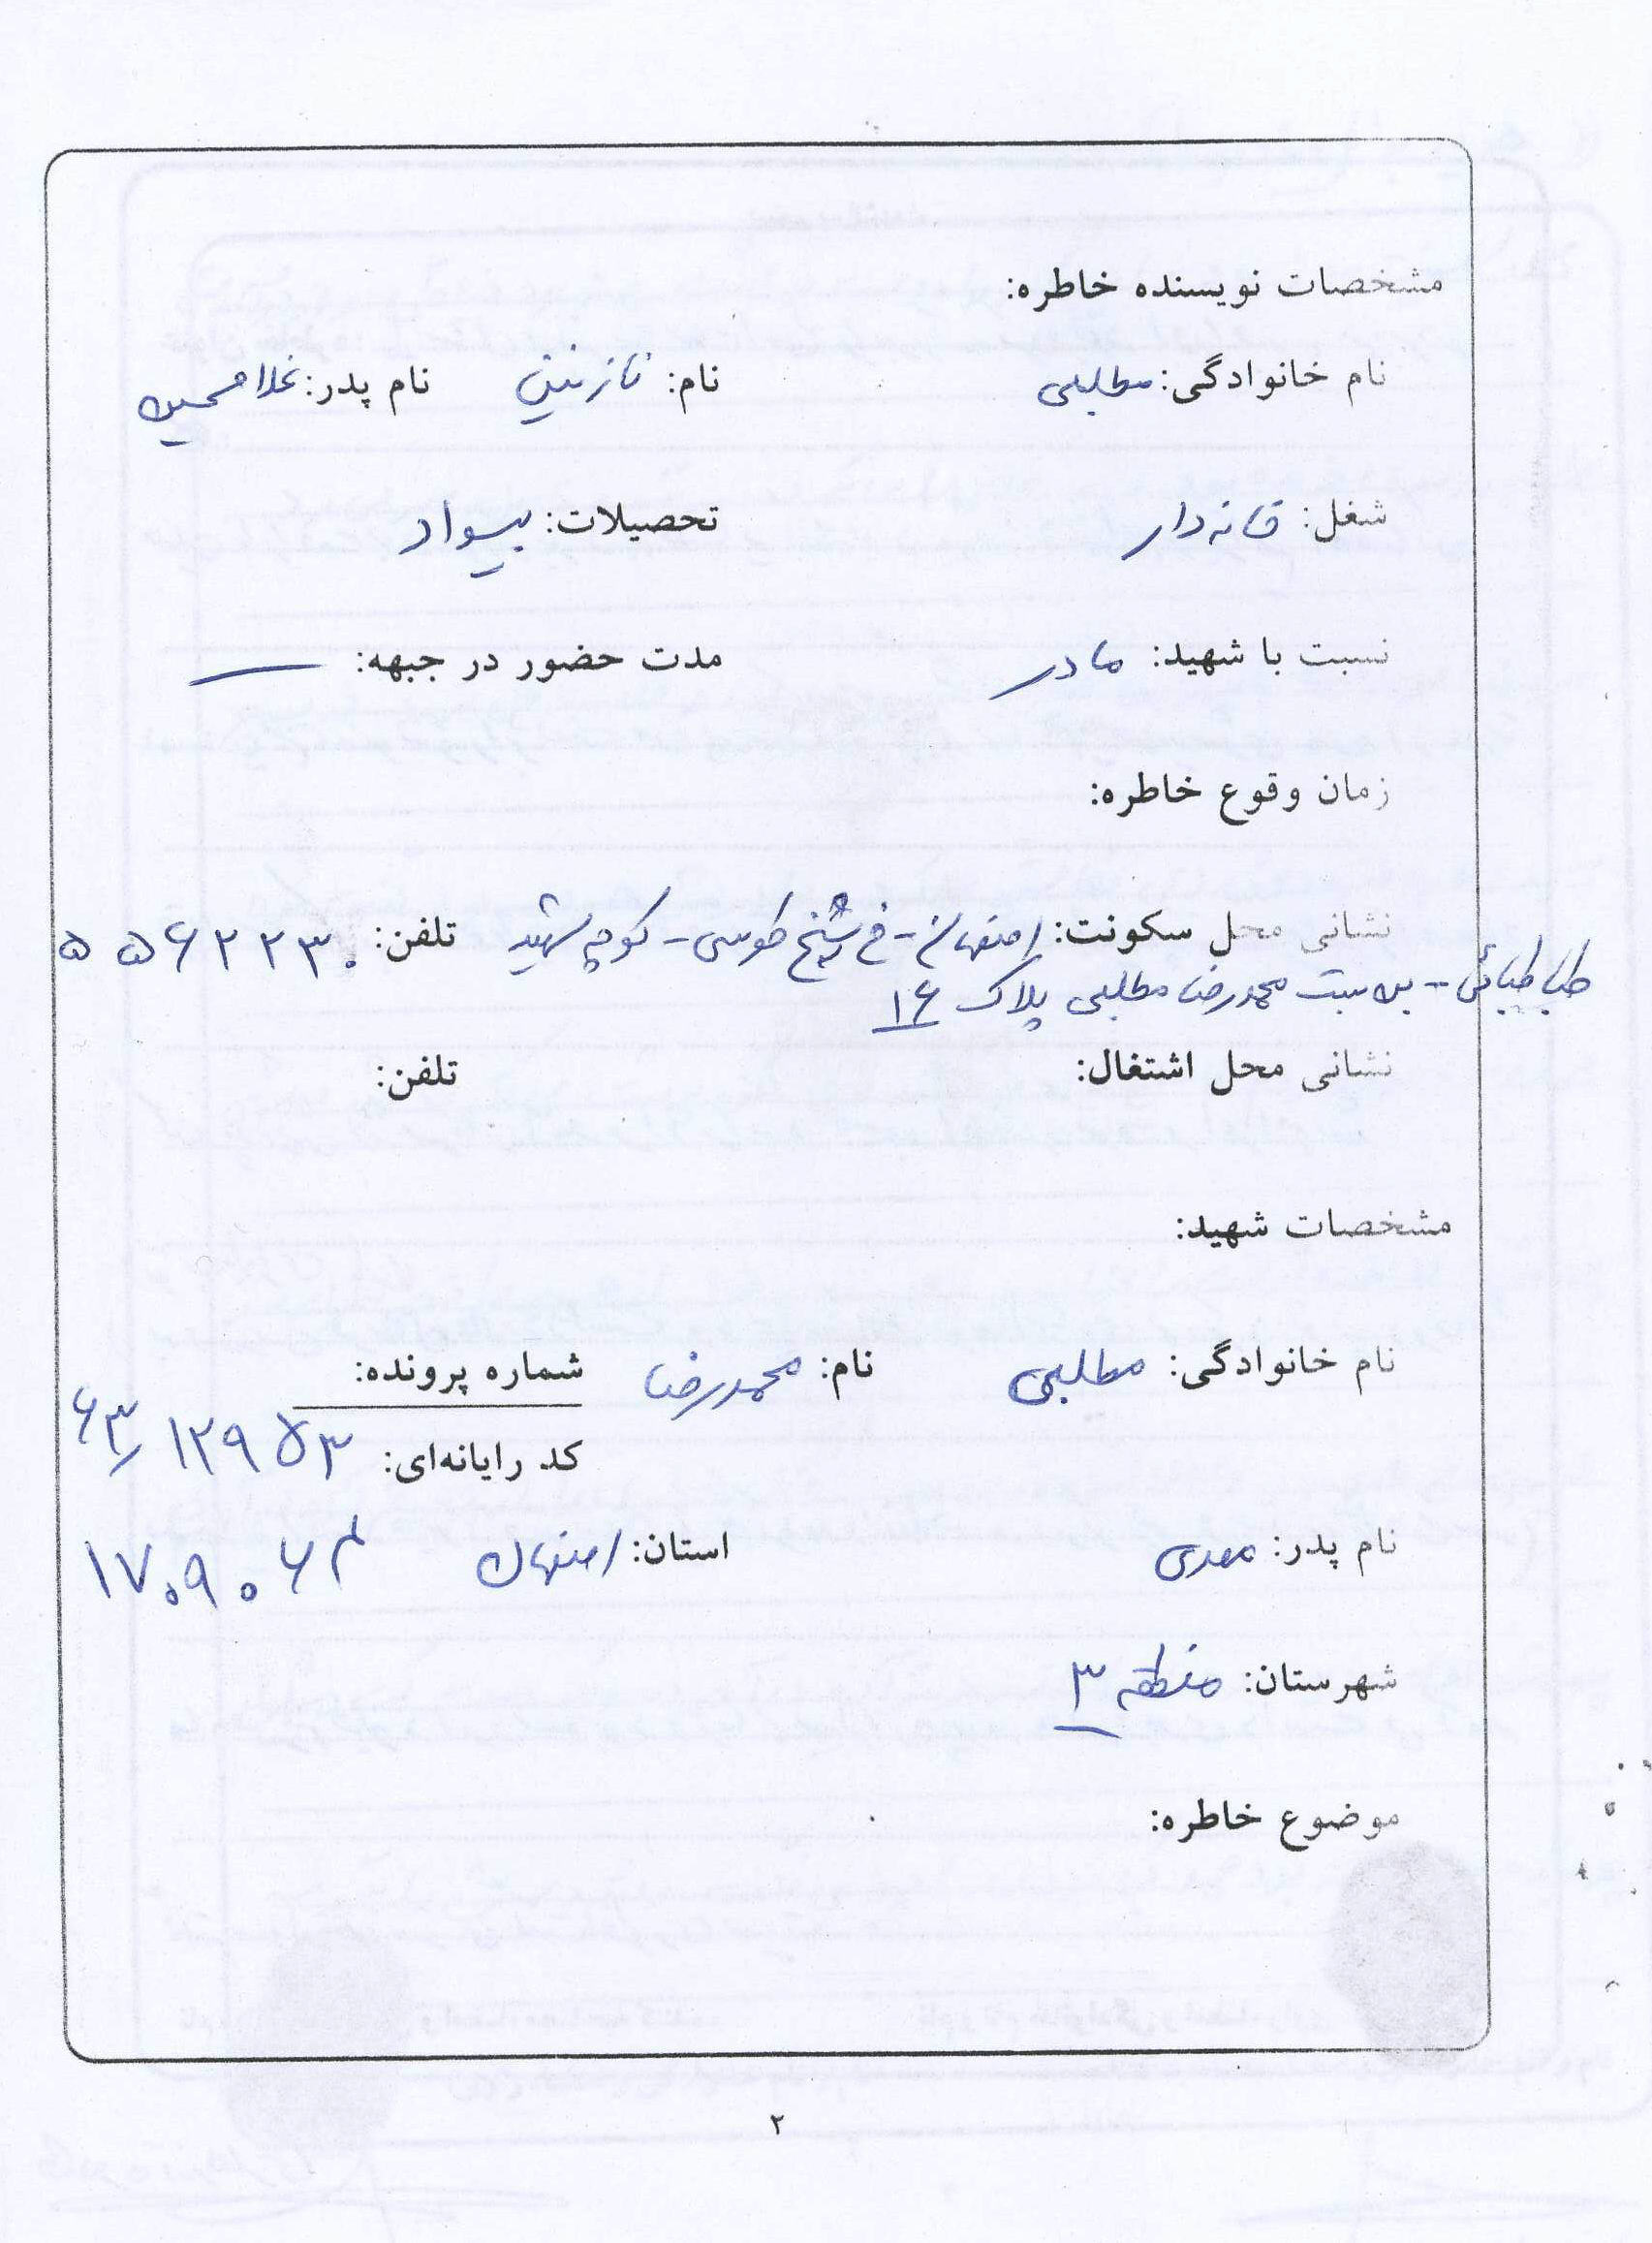 مشخصات نویسنده خاطره:
نام خانوادگی: مطلبی نام: نازنین نام پدر: غلامحسین
شغل: خانه‌دار تحصیلات: بیسواد
نسبت با شهید: مادر مدت حضور در جبهه: —
زمان وقوع خاطره:
نشانی محل سکونت: اصفهان - خ شیخ طوسی - کوچه شهید تلفن: ۵۵۶۲۲۳۰
طباطبائی - بن بست محمدرضا مطلبی پلاک ۱۶
نشانی محل اشتغال: تلفن:
مشخصات شهید:
نام خانوادگی: مطلبی نام: محمدرضا شماره پرونده:
کد رایانه‌ای: ۱۲۹۵۳ ۶۳
نام پدر: مهدی استان: اصفهان ۱۷۰۹۰۶۲
شهرستان: منطقه ۳
موضوع خاطره:
۲